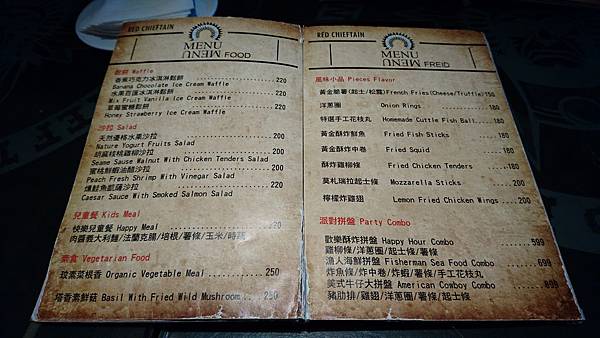 RED CHIEFTAIN
MENU
MENU
FOOD
鬆餅 Waffle
香蕉巧克力冰淇淋鬆餅 220
Banana Chocolate Ice Cream Waffle
水果百匯冰淇淋鬆餅 220
Mix Fruit Vanilla Ice Cream Waffle
草莓蜜糖鬆餅 200
Honey Strawberry Ice Cream Waffle
沙拉 Salad
天然優格水果沙拉 200
Nature Yogurt Fruits Salad
胡麻核桃雞柳沙拉 200
Seame Sause Walnut With Chicken Tenders Salad
蜜桃鮮蝦油醋沙拉 200
Peach Fresh Shrimp With Vinegar Salad
燻鮭魚凱薩沙拉 220
Caesar Sauce With Smoked Salmon Salad
兒童餐 Kids Meal
快樂兒童餐 Happy Meal ..... 220
肉醬義大利麵/法蘭克腸/培根/薯條/玉米/時蔬
素食 Vegetarian Food
玟素菜根香 Organic Vegetable Meal ............ 250
塔香素鮮菇 Basil With Fried Wild Mushroom .... 250
RED CHIEFTAIN
MENU
MENU
FREID
風味小品 Pieces Flavor
黃金脆薯(起士/松露)French Fries(Cheese/Truffle)150
洋蔥圈 Onion Rings 180
特選手工花枝丸 Homemade Cuttle Fish Ball 180
黃金酥炸鮮魚 Fried Fish Sticks 180
黃金酥炸中卷 Fried Squid 180
酥炸雞柳條 Fried Chicken Tenders ......180
莫札瑞拉起士條 Mozzarella Sticks ........ 200
檸檬炸雞翅 Lemon Fried Chicken Wings .... 200
派對拼盤 Party Combo
歡樂酥炸拼盤 Happy Hour Combo ...... 599
雞柳條/洋蔥圈/起士條/薯條
漁人海鮮拼盤 Fisherman Sea Food Combo ....... 699
炸魚條/炸中卷/炸蝦/薯條/手工花枝丸
美式牛仔大拼盤 American Comboy Combo ....... 899
豬肋排/雞翅/洋蔥圈/薯條/起士條